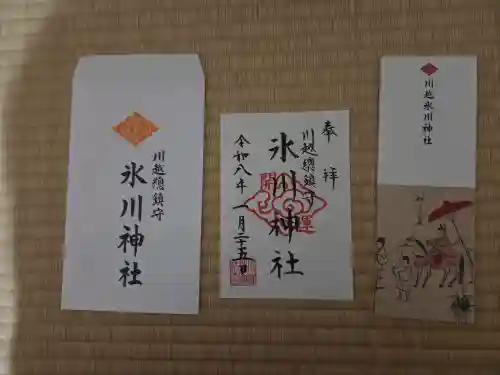 川越總鎮守
氷川神社
奉拝
川越總鎮守
氷川神社
開運
令和八年一月二十五日
川越氷川神社